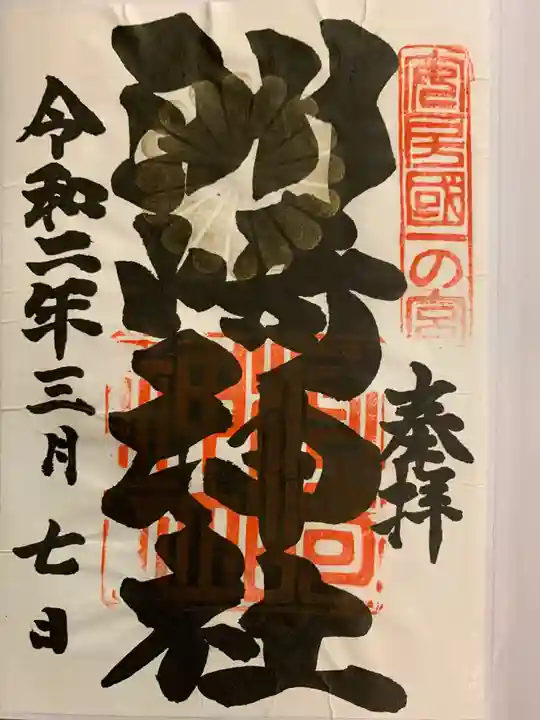 安房國一の宮
奉拝
洲崎神社
令和二年三月七日